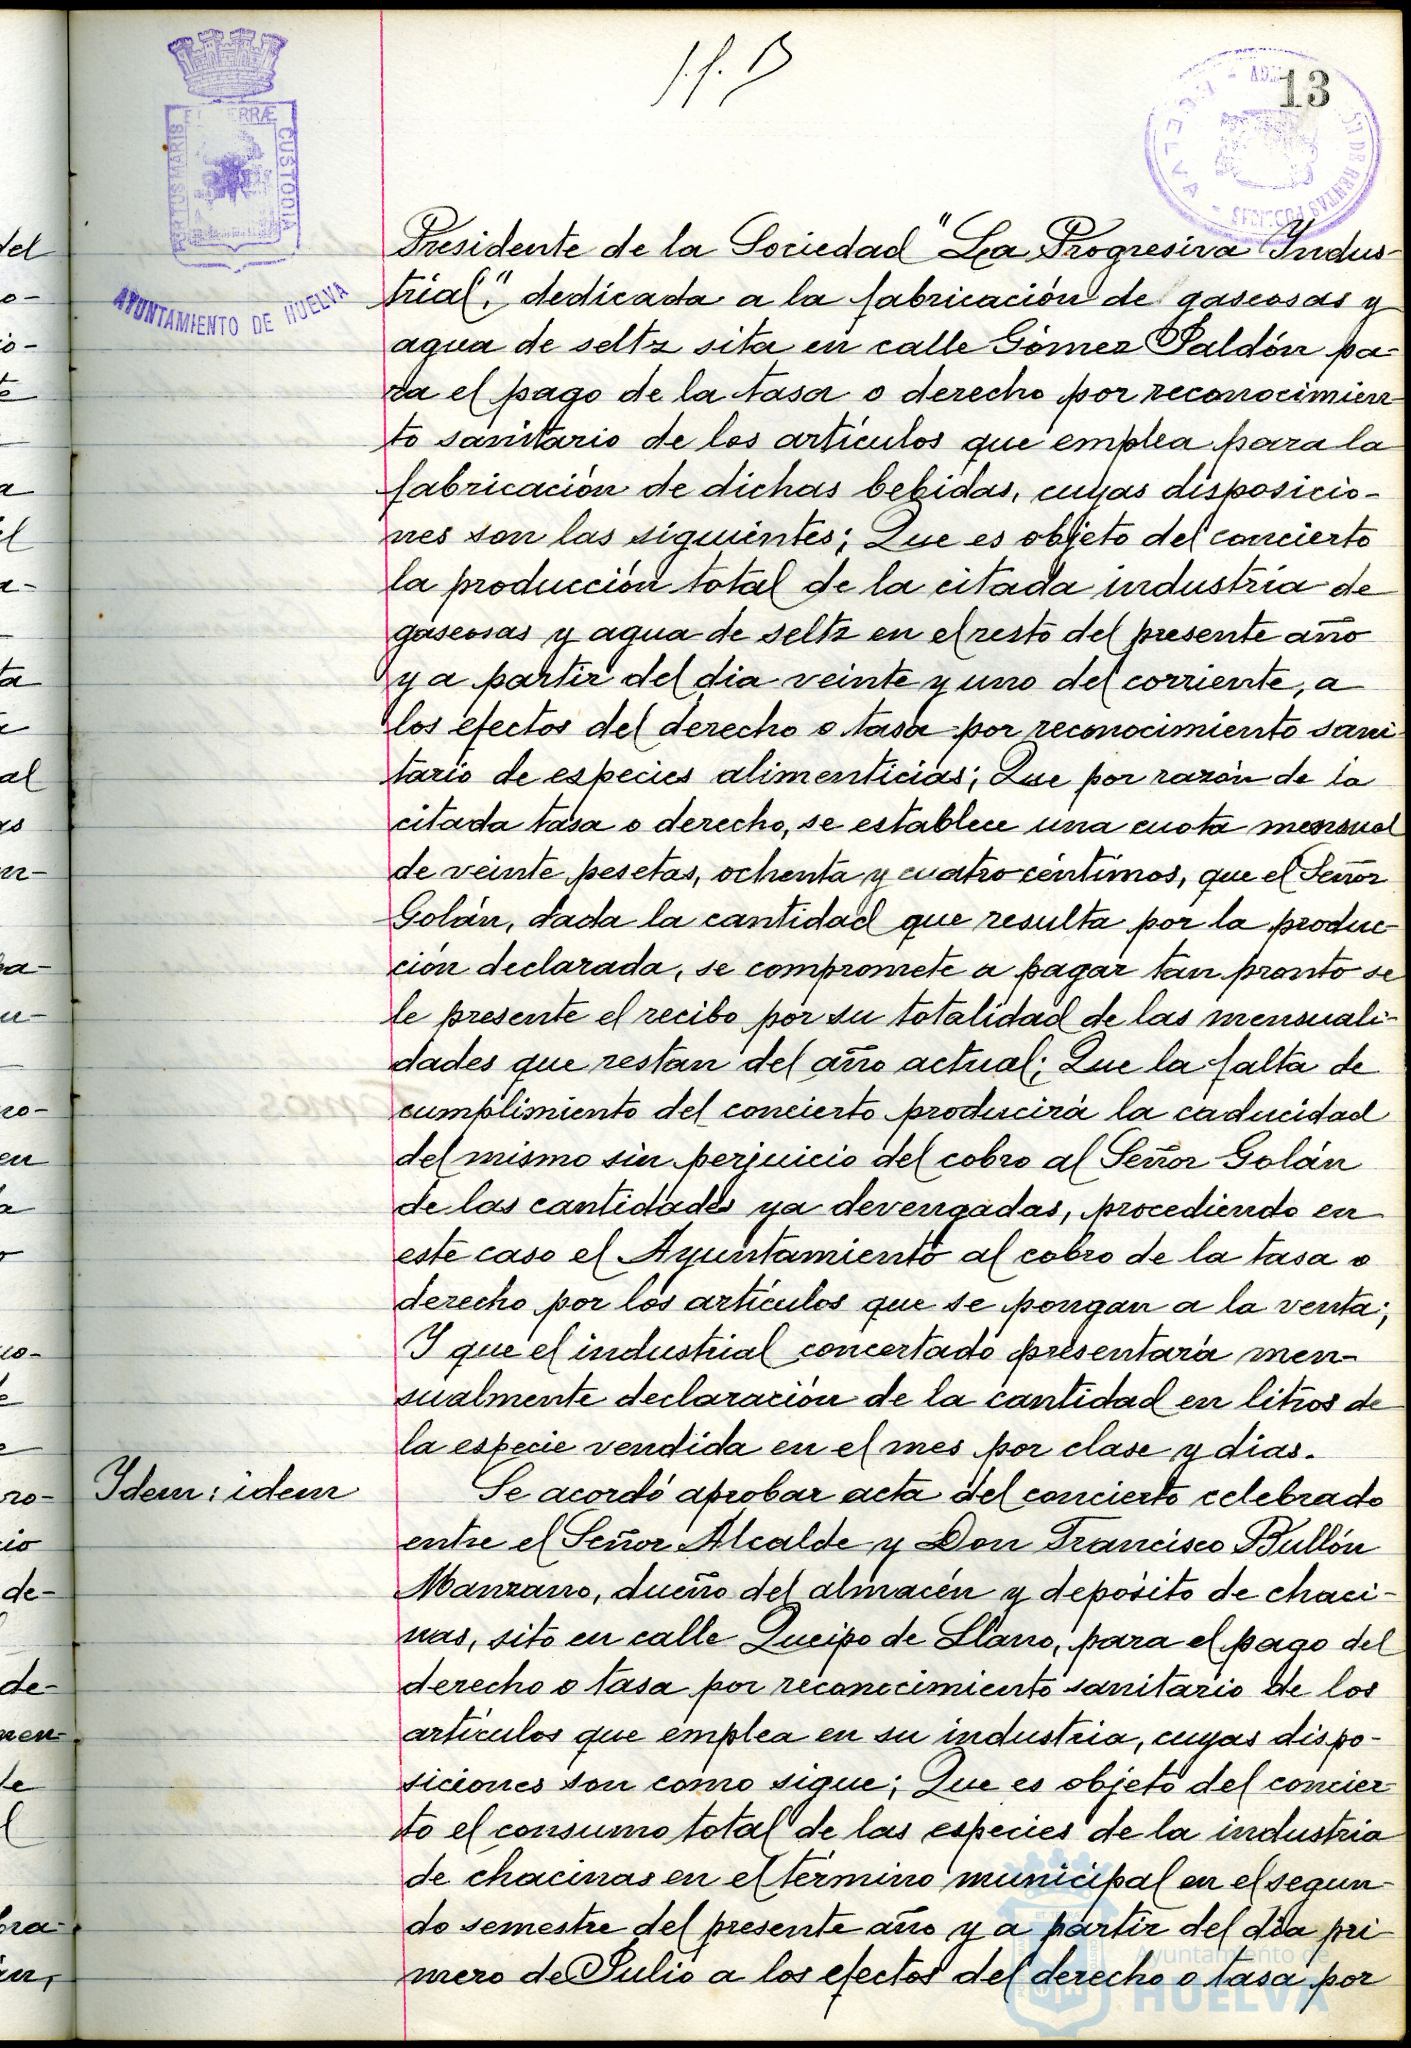 13
PORTUS MARIS ET TERRÆ CUSTODIA
AYUNTAMIENTO DE HUELVA
Presidente de la Sociedad "La Progresiva Indus-
trial", dedicada a la fabricación de gaseosas y
agua de seltz sita en calle Gómez Jaldón pa-
ra el pago de la tasa o derecho por reconocimien
to sanitario de los artículos que emplea para la
fabricación de dichas bebidas, cuyas disposicio-
nes son las siguientes; Que es objeto del concierto
la producción total de la citada industria de
gaseosas y agua de seltz en el resto del presente año
y a partir del dia veinte y uno del corriente, a
los efectos del derecho o tasa por reconocimiento sani-
tario de especies alimenticias; Que por razón de la
citada tasa o derecho, se establece una cuota mensual
de veinte pesetas, ochenta y cuatro céntimos, que el Señor
Golán, dada la cantidad que resulta por la produc-
ción declarada, se compromete a pagar tan pronto se
le presente el recibo por su totalidad de las mensuali-
dades que restan del año actual; Que la falta de
cumplimiento del concierto producirá la caducidad
del mismo sin perjuicio del cobro al Señor Golán
de las cantidades ya devengadas, procediendo en
este caso el Ayuntamiento al cobro de la tasa o
derecho por los artículos que se pongan a la venta;
Y que el industrial concertado presentará men-
sualmente declaración de la cantidad en litros de
la especie vendida en el mes por clase y dias.
Idem: idem
Se acordó aprobar acta del concierto celebrado
entre el Señor Alcalde y Don Francisco Bullón
Manzano, dueño del almacén y depósito de chaci-
nas, sito en calle Queipo de Llano, para el pago del
derecho o tasa por reconocimiento sanitario de los
artículos que emplea en su industria, cuyas dispo-
siciones son como sigue; Que es objeto del concier-
to el consumo total de las especies de la industria
de chacinas en el término municipal en el segun-
do semestre del presente año y a partir del dia pri-
mero de Julio a los efectos del derecho o tasa por
Ayuntamiento de
HUELVA